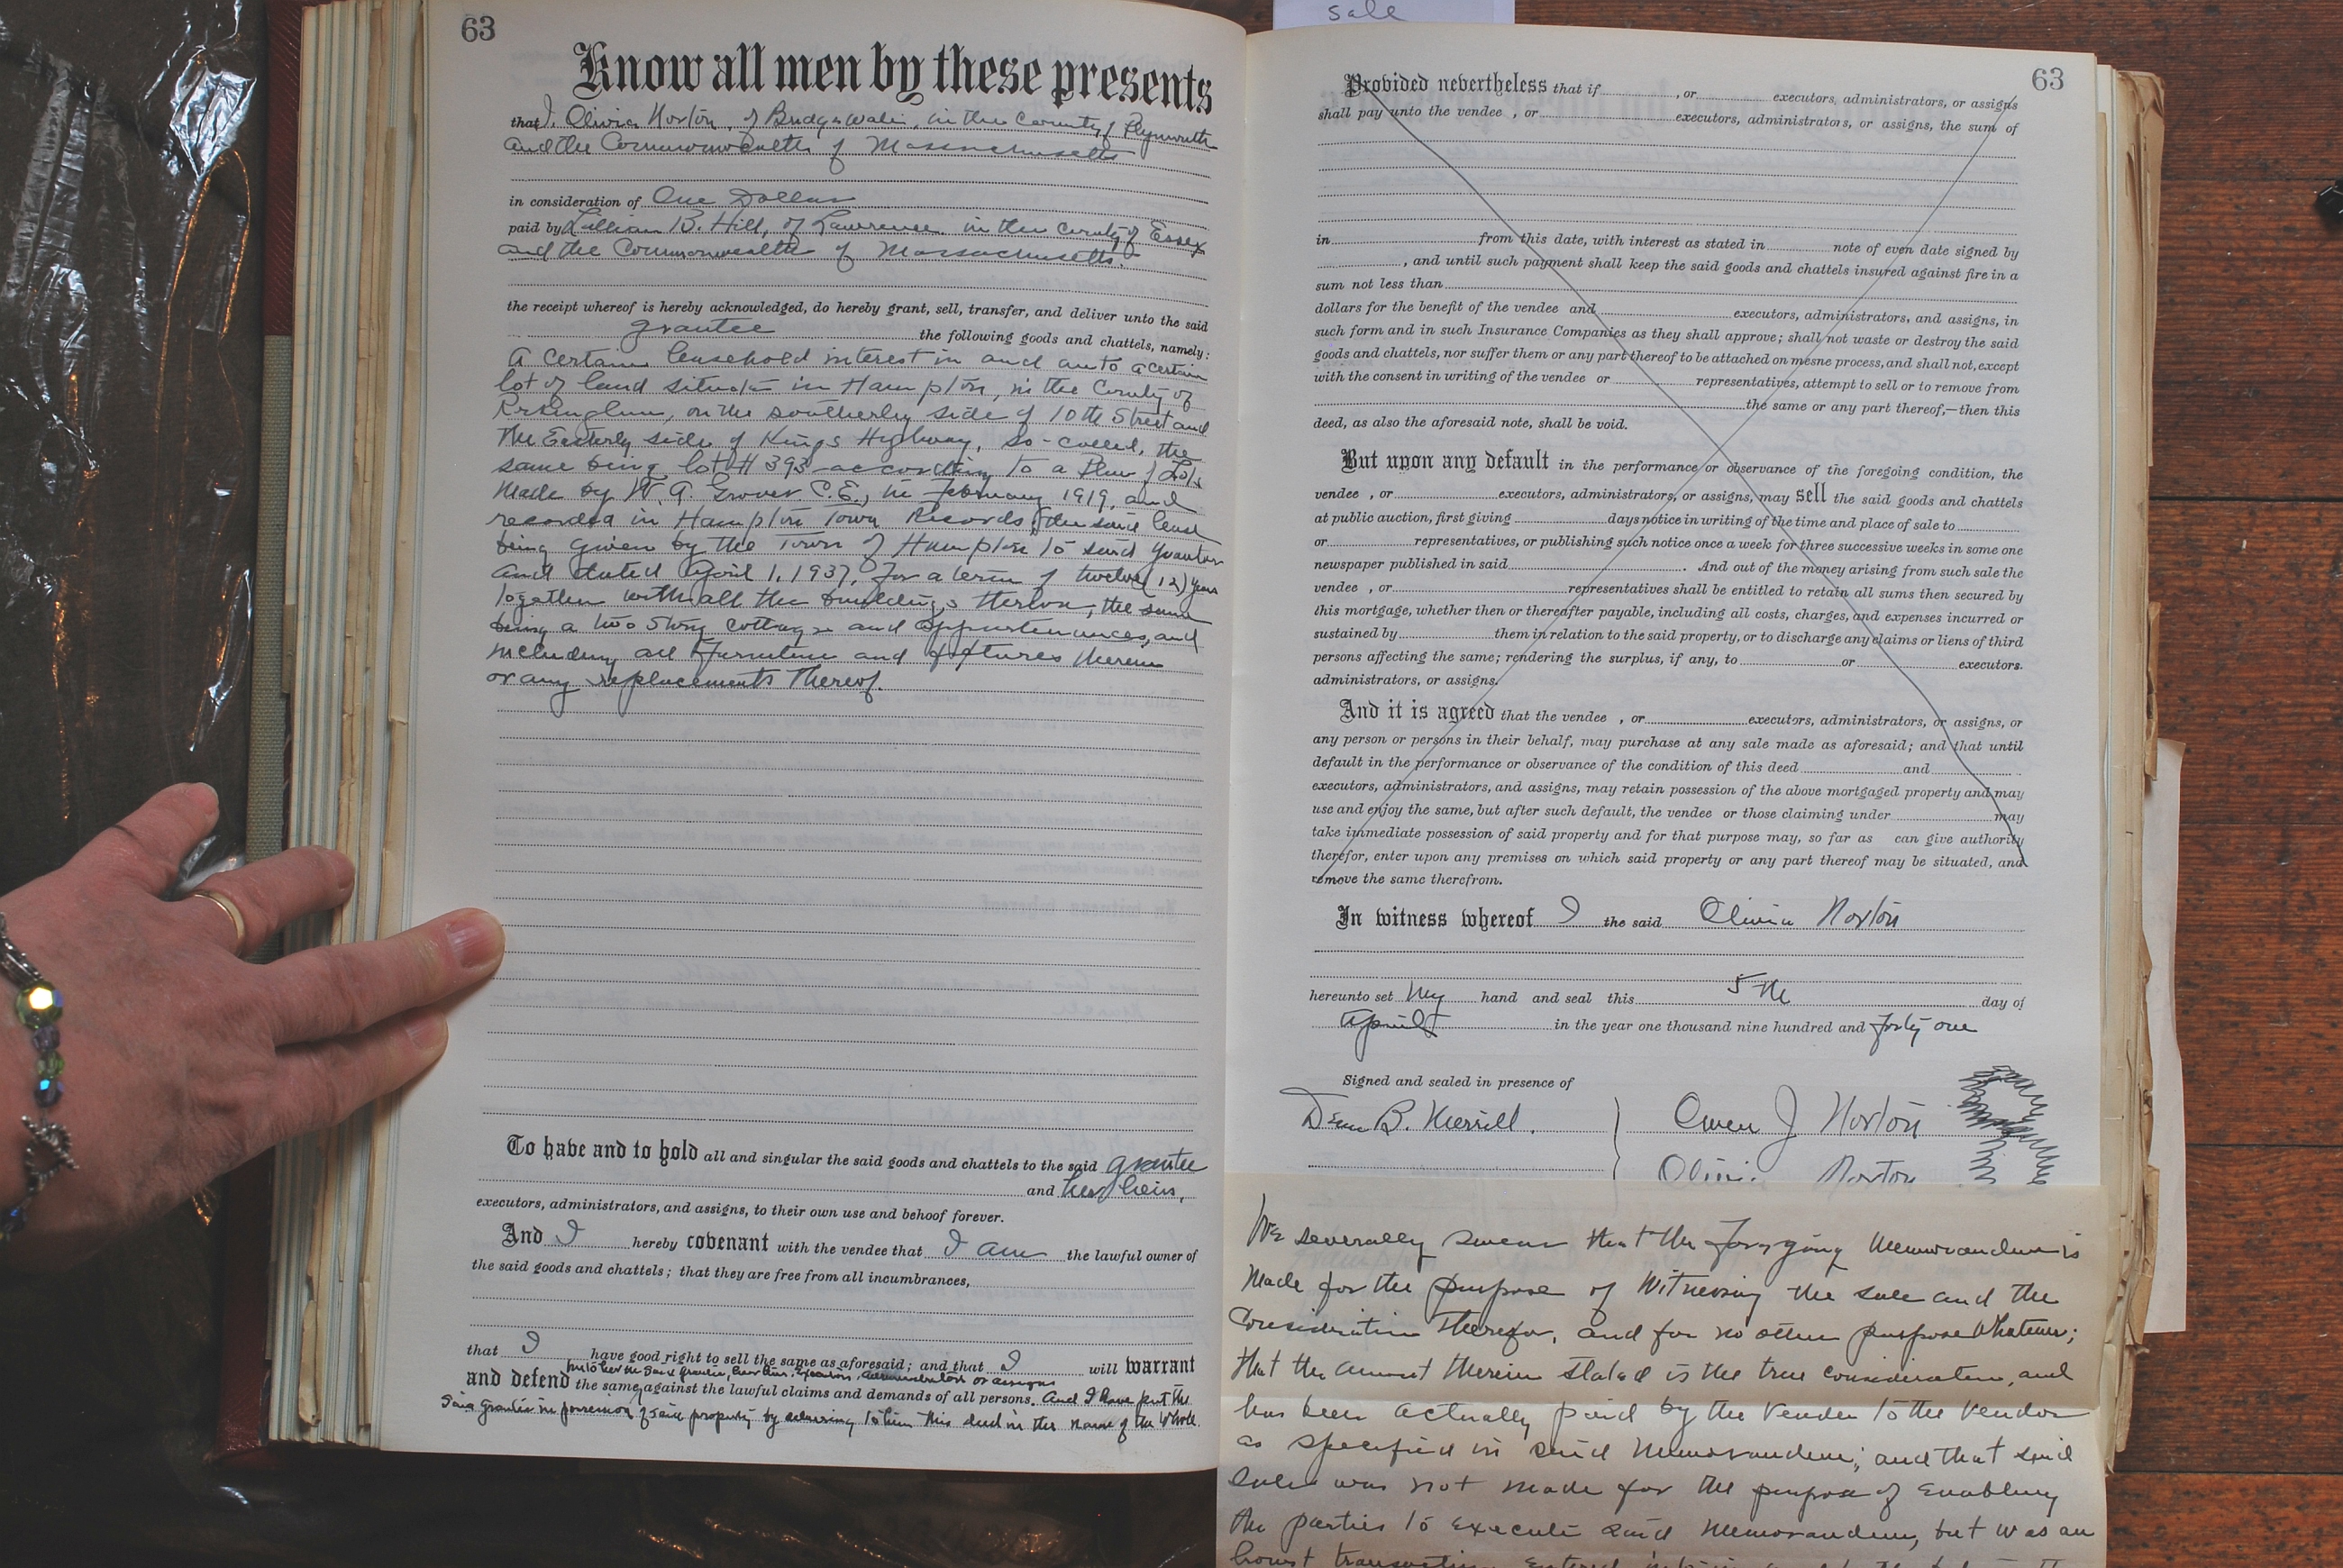 sale
63
Know all men by these presents
that I, Olivia Norton, of Bridgewater, in the County of Plymouth
and the Commonwealth of Massachusetts
in consideration of One Dollar
paid by Lillian B. Hill, of Lawrence in the County of Essex
and the Commonwealth of Massachusetts.
the receipt whereof is hereby acknowledged, do hereby grant, sell, transfer, and deliver unto the said
grantee the following goods and chattels, namely:
A certain leasehold interest in and unto a certain
lot of land situate in Hampton, in the County of
Rockingham, on the southerly side of 10th Street and
the Easterly side of Kings Highway, so-called, the
same being lot # 393 according to a Plan of Lots
made by W. A. Grover C.E., in February 1919, and
recorded in Hampton Town Records, the said lease
being given by the Town of Hampton to said Grantor
and dated April 1, 1937, for a term of twelve (12) years
Together with all the buildings thereon, the same
being a two story cottage and appurtenances, and
including all furniture and fixtures therein
or any replacements thereof.
To have and to hold all and singular the said goods and chattels to the said grantee
and her heirs,
executors, administrators, and assigns, to their own use and behoof forever.
And I hereby covenant with the vendee that I am the lawful owner of
the said goods and chattels; that they are free from all incumbrances,
that I have good right to sell the same as aforesaid; and that I will warrant
unto her the said grantee, her heirs, Executors, administrators or assigns
and defend the same against the lawful claims and demands of all persons. And I have put the
said grantee in possession of said property by delivering to him this deed in the name of the whole.
63
Provided nevertheless that if , or executors, administrators, or assigns
shall pay unto the vendee , or executors, administrators, or assigns, the sum of
in from this date, with interest as stated in note of even date signed by
, and until such payment shall keep the said goods and chattels insured against fire in a
sum not less than
dollars for the benefit of the vendee and executors, administrators, and assigns, in
such form and in such Insurance Companies as they shall approve; shall not waste or destroy the said
goods and chattels, nor suffer them or any part thereof to be attached on mesne process, and shall not, except
with the consent in writing of the vendee or representatives, attempt to sell or to remove from
the same or any part thereof,—then this
deed, as also the aforesaid note, shall be void.
But upon any default in the performance or observance of the foregoing condition, the
vendee , or executors, administrators, or assigns, may sell the said goods and chattels
at public auction, first giving days notice in writing of the time and place of sale to
or representatives, or publishing such notice once a week for three successive weeks in some one
newspaper published in said . And out of the money arising from such sale the
vendee , or representatives shall be entitled to retain all sums then secured by
this mortgage, whether then or thereafter payable, including all costs, charges, and expenses incurred or
sustained by them in relation to the said property, or to discharge any claims or liens of third
persons affecting the same; rendering the surplus, if any, to or executors.
administrators, or assigns.
And it is agreed that the vendee , or executors, administrators, or assigns, or
any person or persons in their behalf, may purchase at any sale made as aforesaid; and that until
default in the performance or observance of the condition of this deed and
executors, administrators, and assigns, may retain possession of the above mortgaged property and may
use and enjoy the same, but after such default, the vendee or those claiming under may
take immediate possession of said property and for that purpose may, so far as can give authority
therefor, enter upon any premises on which said property or any part thereof may be situated, and
remove the same therefrom.
In witness whereof I the said Olivia Norton
hereunto set my hand and seal this 5th day of
April in the year one thousand nine hundred and forty one
Signed and sealed in presence of
Dean B. Merrill. Owen J Norton
Olivia Norton
We severally swear that the foregoing memorandum is
made for the purpose of witnessing the sale and the
Consideration therefor, and for no other purpose whatever;
that the amount therein stated is the true consideration, and
has been actually paid by the vendee to the vendor
as specified in said memorandum; and that said
sale was not made for the purpose of enabling
the parties to execute said memorandum, but was an
honest transaction